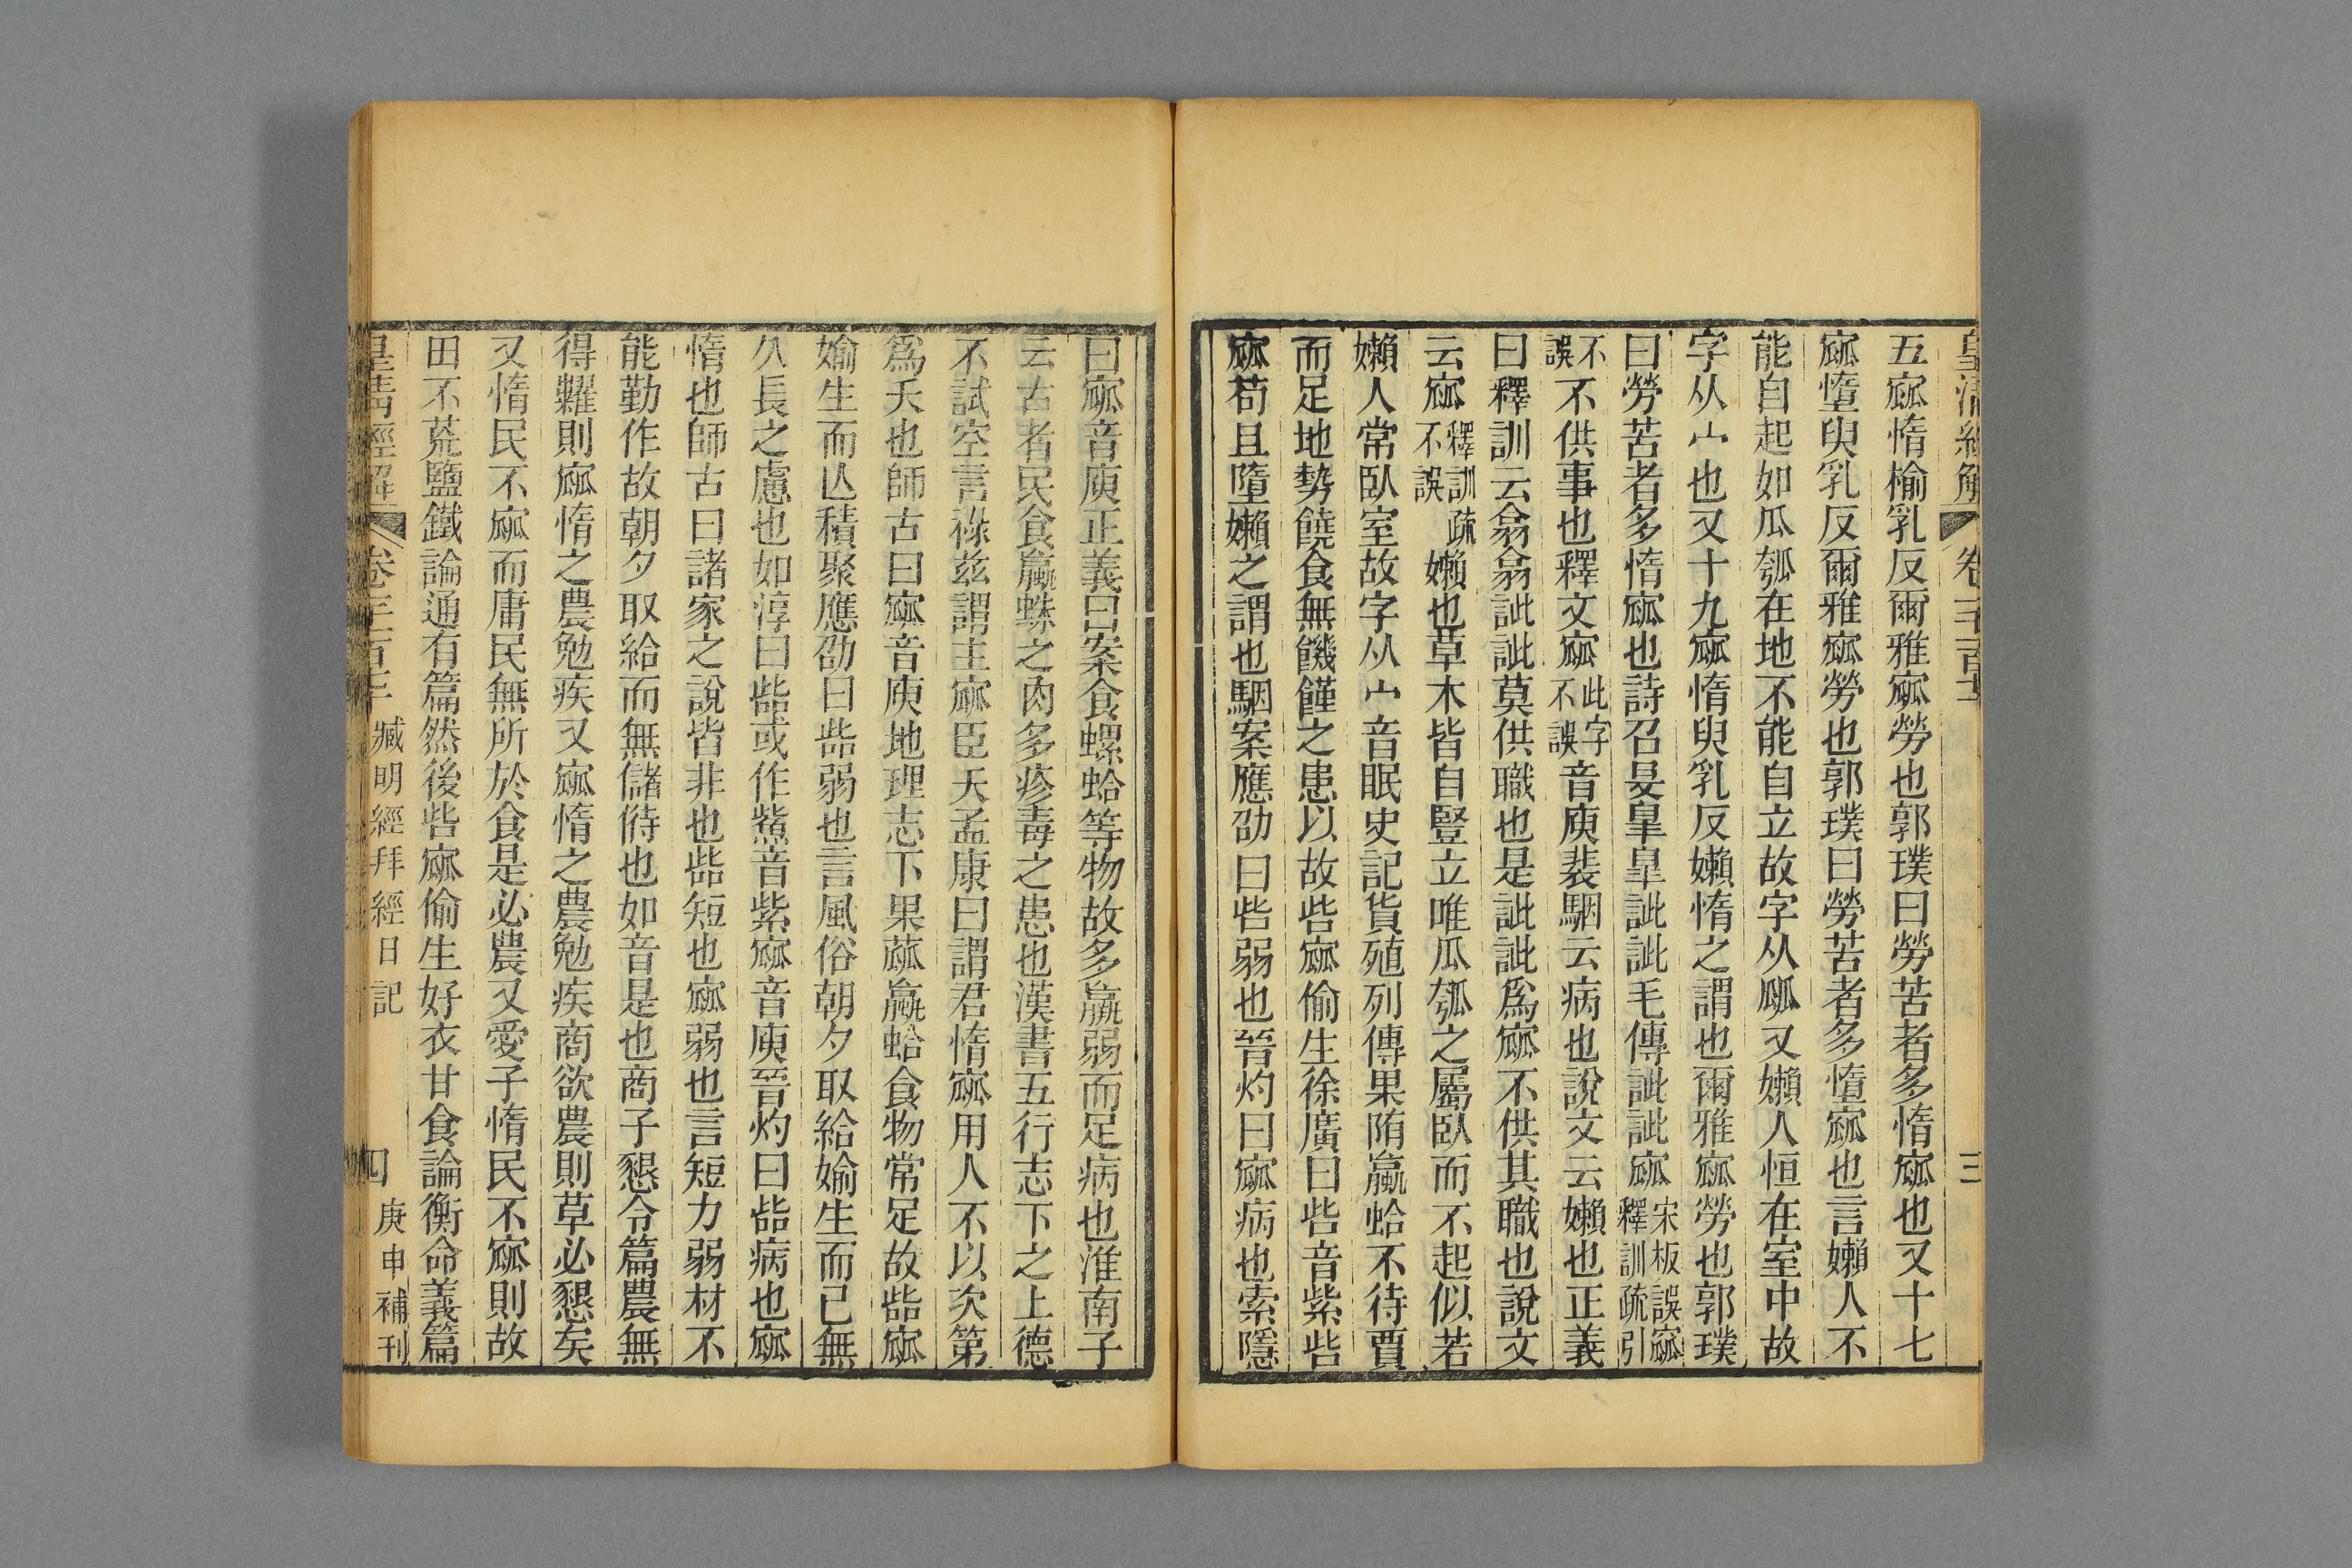 皇清經解 卷一千一百七十 三
五寙惰榆乳反爾雅寙勞也郭璞曰勞苦者多惰寙也又十七
寙墯臾乳反爾雅寙勞也郭璞曰勞苦者多墯寙也言嬾人不
能自起如瓜瓠在地不能自立故字从㼌又嬾人恒在室中故
字从宀也又十九寙惰臾乳反嬾惰之謂也爾雅寙勞也郭璞
曰勞苦者多惰寙也詩召旻臯臯訿訿毛傳訿訿寙宋板誤寙釋訓疏引
不誤不供事也釋文寙此字不誤音庾裴駰云病也說文云嬾也正義
曰釋訓云翕翕訿訿莫供職也是訿訿爲寙不供其職也說文
云寙釋訓疏不誤嬾也草木皆自豎立唯瓜瓠之屬臥而不起似若
嬾人常臥室故字从宀音眠史記貨殖列傳果隋蠃蛤不待賈
而足地埶饒食無饑饉之患以故呰寙偷生徐廣曰呰音紫呰
寙苟且墮嬾之謂也駰案應劭曰呰弱也晉灼曰寙病也索隱
曰寙音庾正義曰案食螺蛤等物故多羸弱而足病也淮南子
云古者民食蠃蛖之肉多疹毒之患也漢書五行志下之上德
不試空言祿兹謂主寙臣夭孟康曰謂君惰寙用人不以次第
爲夭也師古曰寙音庾地理志下果蓏蠃蛤食物常足故啙寙
媮生而亾積聚應劭曰啙弱也言風俗朝夕取給媮生而已無
久長之慮也如淳曰啙或作鮆音紫寙音庾晉灼曰啙病也寙
惰也師古曰諸家之說皆非也啙短也寙弱也言短力弱材不
能勤作故朝夕取給而無儲偫也如音是也商子懇令篇農無
得糶則寙惰之農勉疾又寙惰之農勉疾商欲農則草必懇矣
又惰民不寙而庸民無所於食是必農又愛子惰民不寙則故
田不荒鹽鐵論通有篇然後呰寙偷生好衣甘食論衡命義篇
皇清經解 臧明經拜經日記 四 庚申補刊